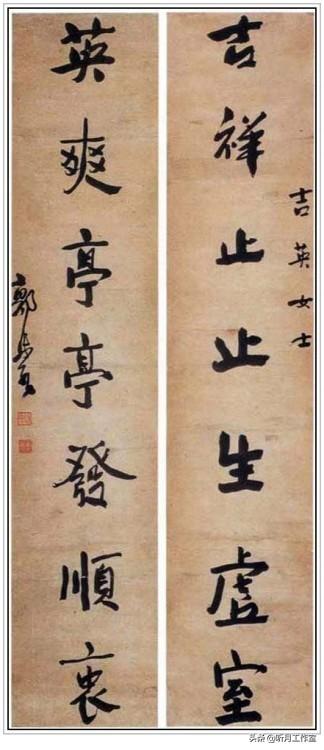 吉祥止止生虚室
吉英女士
英爽亭亭發順衷
头条 @听月工作室